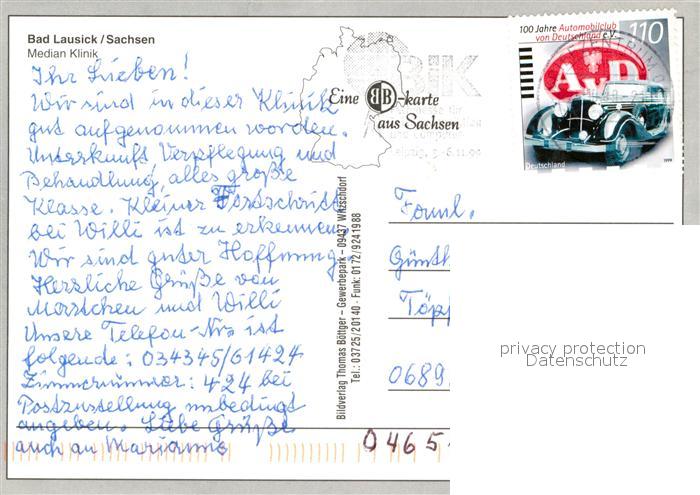 Bad Lausick / Sachsen
Median Klinik
Ihr Lieben!
Wir sind in dieser Klinik
gut aufgenommen worden.
Unterkunft Verpflegung und
Behandlung, alles große
Klasse. Kleiner Fortschritt
bei Willi ist zu erkennen.
Wir sind guter Hoffnung.
Herzliche Grüße von
und Willi
Unsere Telefon-Nr. ist
folgende: 034345/61424
Zimmernummer: 424 bei
Postzustellung unbedingt
angeben. Liebe Grüße
auch an Marianne
Eine BB-karte
aus Sachsen
100 Jahre Automobilclub
von Deutschland e.V.
110
AvD
Deutschland
1999
Bildverlag Thomas Böttger – Gewerbepark – 09437 Witzschdorf
Tel.: 03725/20140 · Funk: 0172/9241988
Faml.
Günth
Töpf
0689
privacy protection
Datenschutz
0465